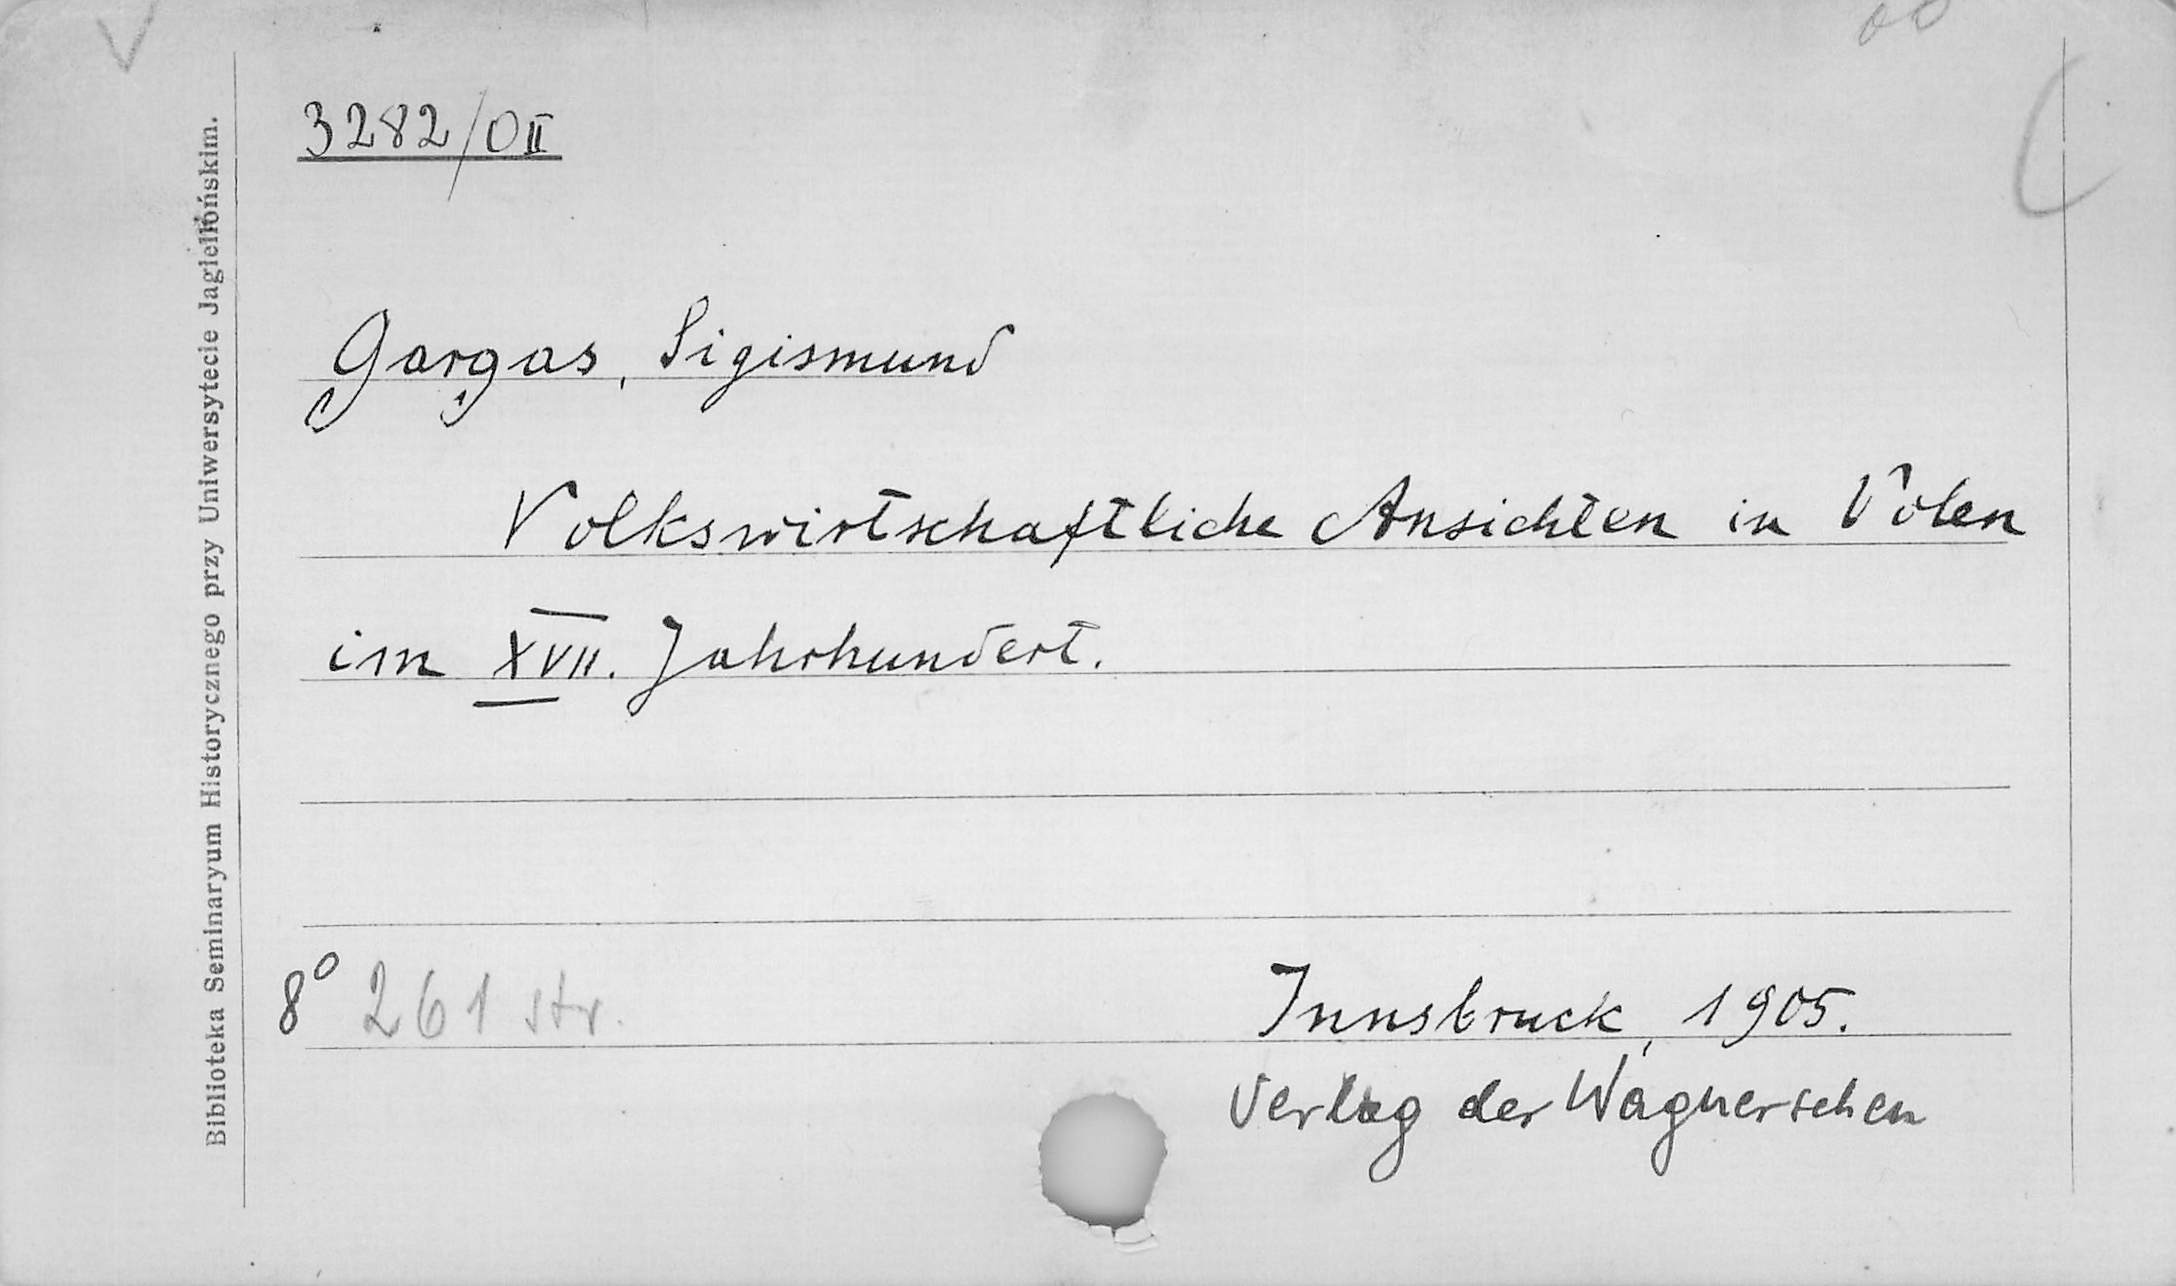 3282/OII
Gargas, Sigismund
Volkswirtschaftliche Ansichten in Polen
im XVII. Jahrhundert.
8° 261 str.
Innsbruck, 1905.
Verlag der Wagnerschen
Biblioteka Seminaryum Historycznego przy Uniwersytecie Jagiellońskim.